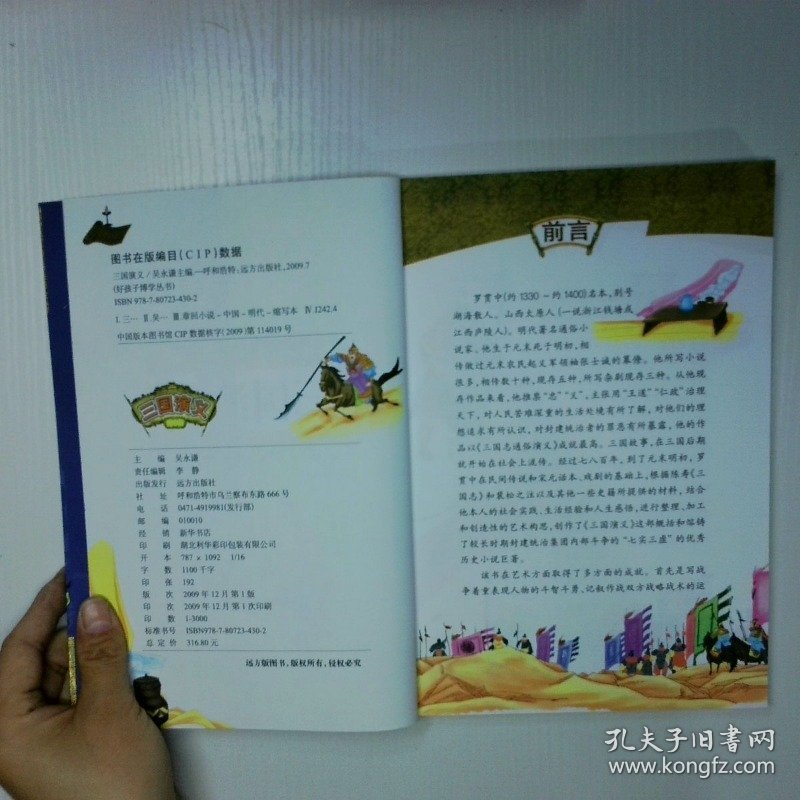 图书在版编目(CIP)数据
三国演义/吴永谦主编.—呼和浩特:远方出版社,2009.7
(好孩子博学丛书)
ISBN 978-7-80723-430-2
Ⅰ.三… Ⅱ.吴… Ⅲ.章回小说-中国-明代-缩写本 Ⅳ I242.4
中国版本图书馆CIP数据核字(2009)第114019号
三国演义
主 编 吴永谦
责任编辑 李 静
出版发行 远方出版社
社 址 呼和浩特市乌兰察布东路666号
电 话 0471-4919981(发行部)
邮 编 010010
经 销 新华书店
印 刷 湖北利华彩印包装有限公司
开 本 787×1092 1/16
字 数 1100千字
印 张 192
版 次 2009年12月第1版
印 次 2009年12月第1次印刷
印 数 1-3000
标准书号 ISBN978-7-80723-430-2
总 定 价 316.80元
远方版图书,版权所有,侵权必究
前言
罗贯中(约1330-约1400)名本,别号
湖海散人。山西太原人(一说浙江钱塘或
江西庐陵人)。明代著名通俗小
说家。他生于元末死于明初,相
传做过元末农民起义军领袖张士诚的幕僚。他所写小说
很多,相传数十种,现存五种,所写杂剧现存三种。从他现
存作品来看,他推崇“忠”“义”,主张用“王道”“仁政”治理
天下,对人民苦难深重的生活处境有所了解,对他们的理
想追求有所认识,对封建统治者的罪恶有所暴露,他的作
品以《三国志通俗演义》成就最高。三国故事,在三国后期
就开始在社会上流传。经过七八百年,到了元末明初,罗
贯中在民间传说和宋元话本、戏剧的基础上,根据陈寿《三
国志》和裴松之注以及其他一些史籍所提供的材料,结合
他本人的社会实践、生活经验和人生感悟,进行整理、加工
和创造性的艺术构思,创作了《三国演义》这部概括和熔铸
了较长时期封建统治集团内部斗争的“七实三虚”的优秀
历史小说巨著。
该书在艺术方面取得了多方面的成就。首先是写战
争着重表现人物的斗智斗勇,记叙作战双方战略战术的运
孔夫子旧书网
www.kongfz.com